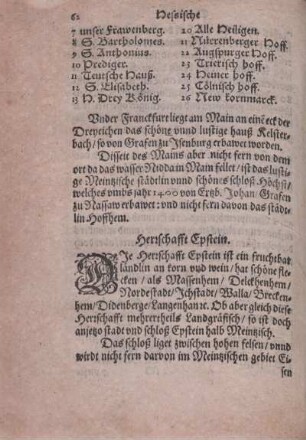 62 Hessische
7 unser Frawenberg.
8 S. Bartholomes.
9 S. Anthonius.
10 Prediger.
11 Teutsche Hauß.
12 S. Elisabeth.
13 H. Drey König.
20 Alle Heiligen.
21 Nürrenberger Hoff.
22 Augspurger Hoff.
23 Trierisch hoff.
24 Heiner hoff.
25 Cölnisch hoff.
26 New kornmarck.
Vnder Franckfurt liegt am Main an eineck der
Dreyeichen das schöne vnnd lustige hauß Kelster-
bach / so von Grafen zu Isenburg erbawet worden.
Disseit des Mains aber nicht fern von dem
ort da das wasser Nidda in Main fellet / ist das lustig-
ge Meintzische städtlin vnnd schönes schloß Höchst /
welches vmbs jahr 1400 von Ertzb. Johan Grafen
zu Nassaw erbawet: vnd nicht fern davon das städt-
lin Hoffheim.
Herrschafft Epstein.
DIe Herrschafft Epstein ist ein fruchtbar
ländlin an korn vnd wein / hat schöne fle-
cken / als Massenhem / Delckenhem /
Nordestadt / Ichstadt / Walla / Brecken-
hem / Didenberge / Langenhan ꝛc. Ob aber gleich diese
Herrschafft mehrertheils Landgräfisch / so ist doch
anjetzo stadt vnd schloß Epstein halb Meintzisch.
Das schloß liget zwischen hohen felsen / vnnd
wirdt nicht fern darvon im Meintzischen gebiet Ei-
sen